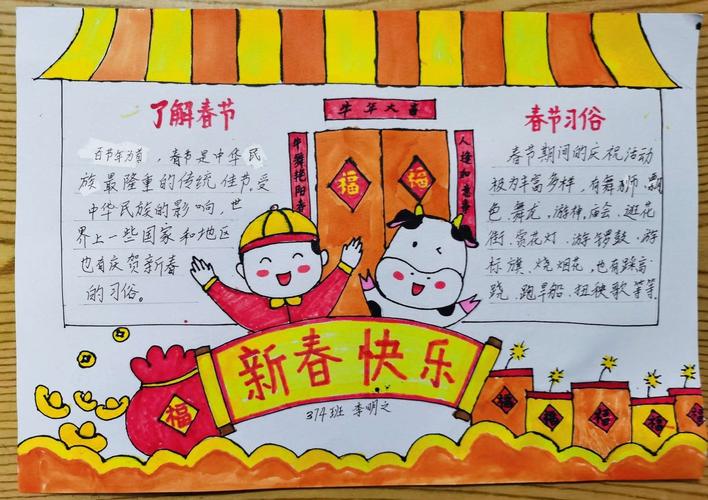 牛年大喜
牛舞艳阳春
人逢如意
福
福
了解春节
百节年为首，春节是中华民
族最隆重的传统佳节,受
中华民族的影响，世
界上一些国家和地区
也有庆贺新春
的习俗。
春节习俗
春节期间的庆祝活动
极为丰富多样，有舞狮、飘
色、舞龙、游神、庙会、逛花
街、赏花灯、游锣鼓、游
标旗、烧烟花，也有踩高
跷、跑旱船、扭秧歌等等.
新春快乐
374班 李明之
福
福
福
福
福
福